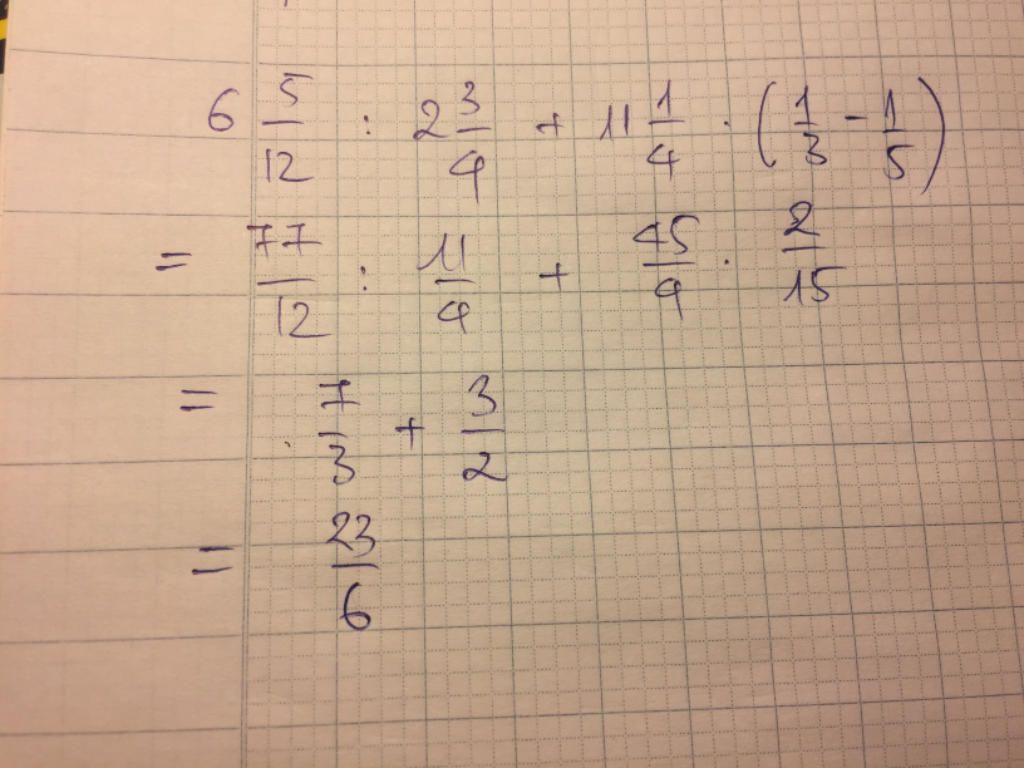 6 5/12 : 2 3/4 + 11 1/4 . (1/3 - 1/5)
= 77/12 : 11/4 + 45/4 . 2/15
= 7/3 + 3/2
= 23/6